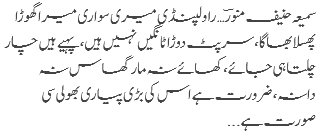 سمیعہ حنیف منور... راولپنڈی میری سواری میرا گھوڑا
پھسلا بھاگا، سرپٹ دوڑا ٹانگیں نہیں ہیں، پہیے ہیں چار
چلتا ہی جائے، کھائے نہ مار گھاس نہ
دانہ، ضرورت ہے اس کی بڑی پیاری بھولی سی
صورت ہے...